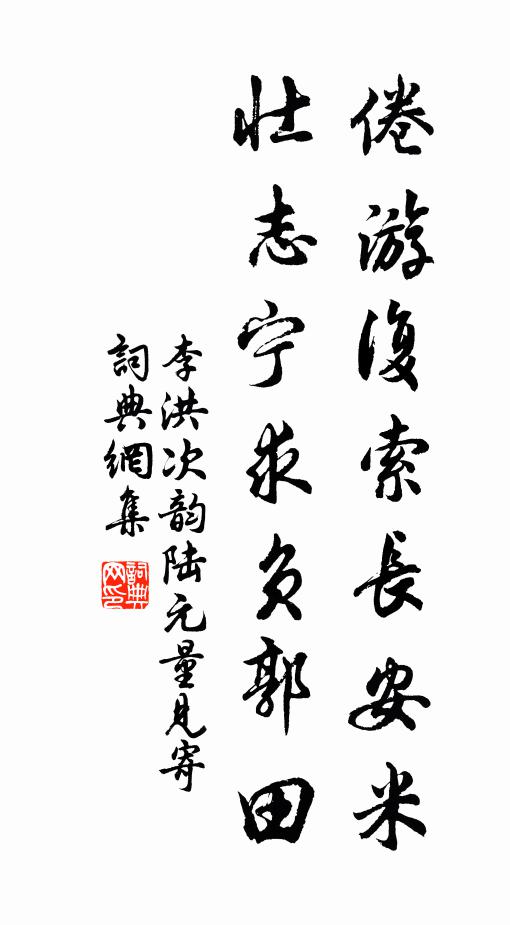 倦游復索長安米
壮志宁求负郭田
李洪次韵陆元量见寄
詞典網集
詞典网印